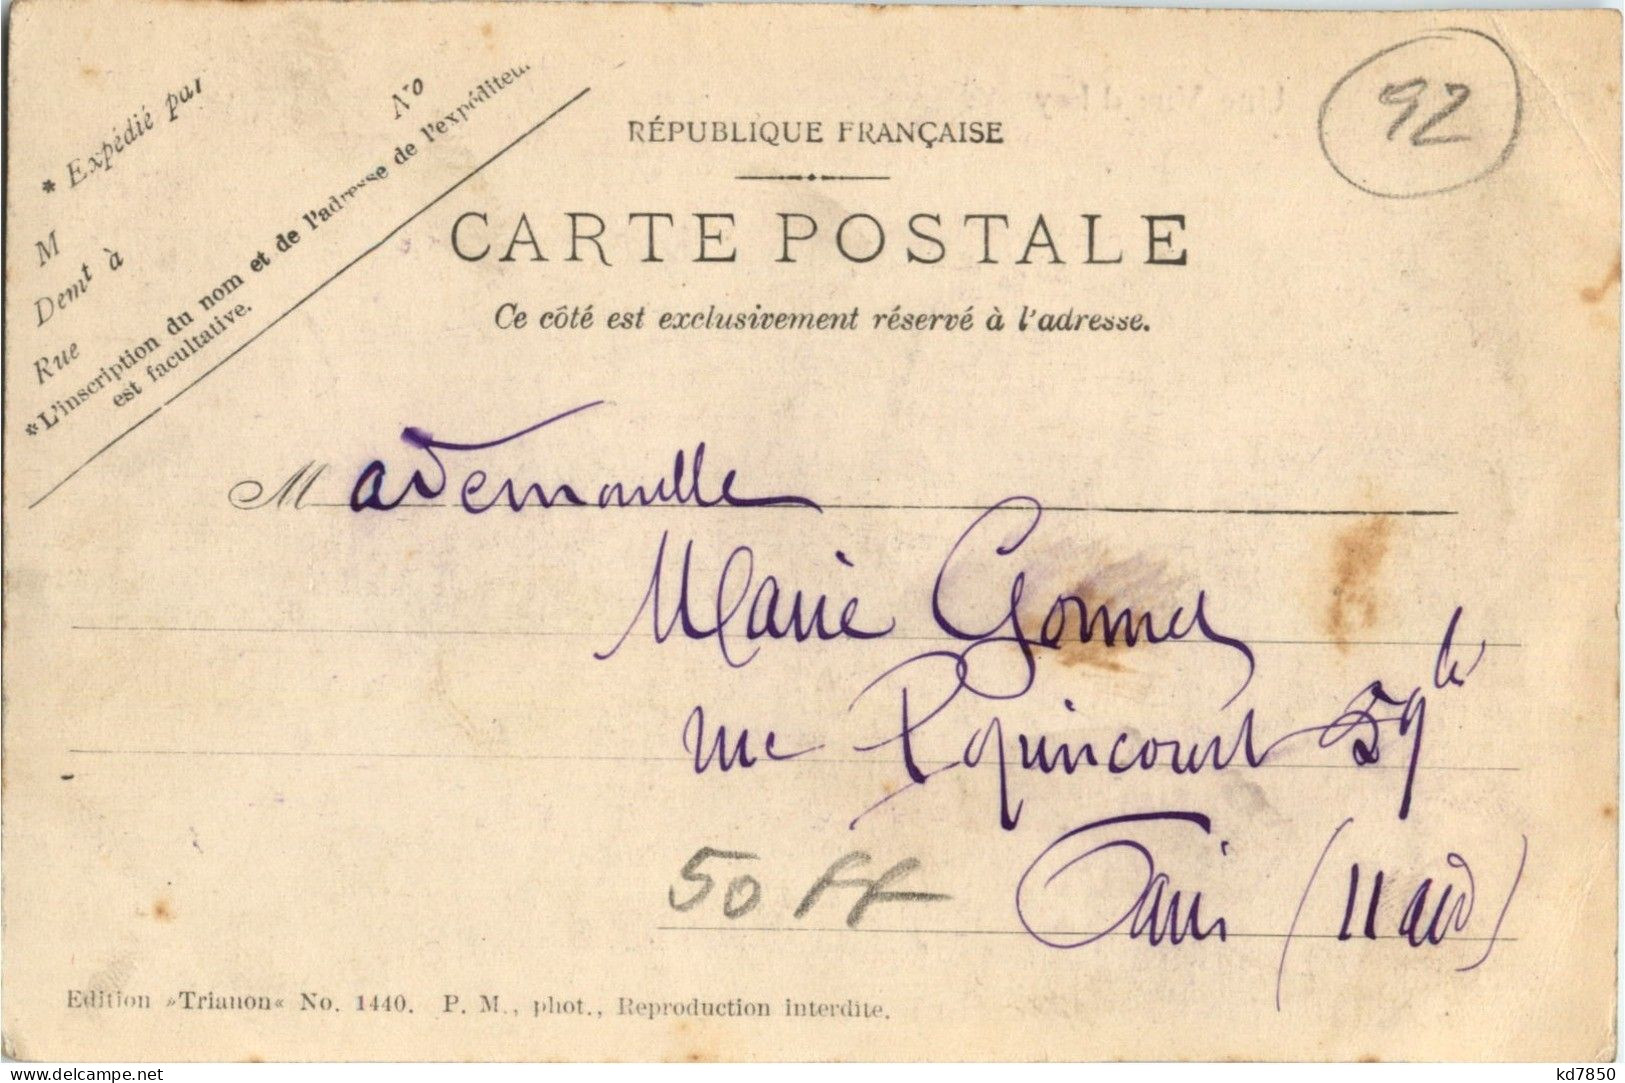 92
* Expédié par
No
M
Demt à
Rue
*L'inscription du nom et de l'adresse de l'expéditeur
est facultative.
RÉPUBLIQUE FRANÇAISE
CARTE POSTALE
Ce côté est exclusivement réservé à l'adresse.
Mademoiselle
Marie
rue Popincourt 59
Paris (11 arrd)
50 FF
Edition »Trianon« No. 1440. P. M., phot., Reproduction interdite.
kd7850